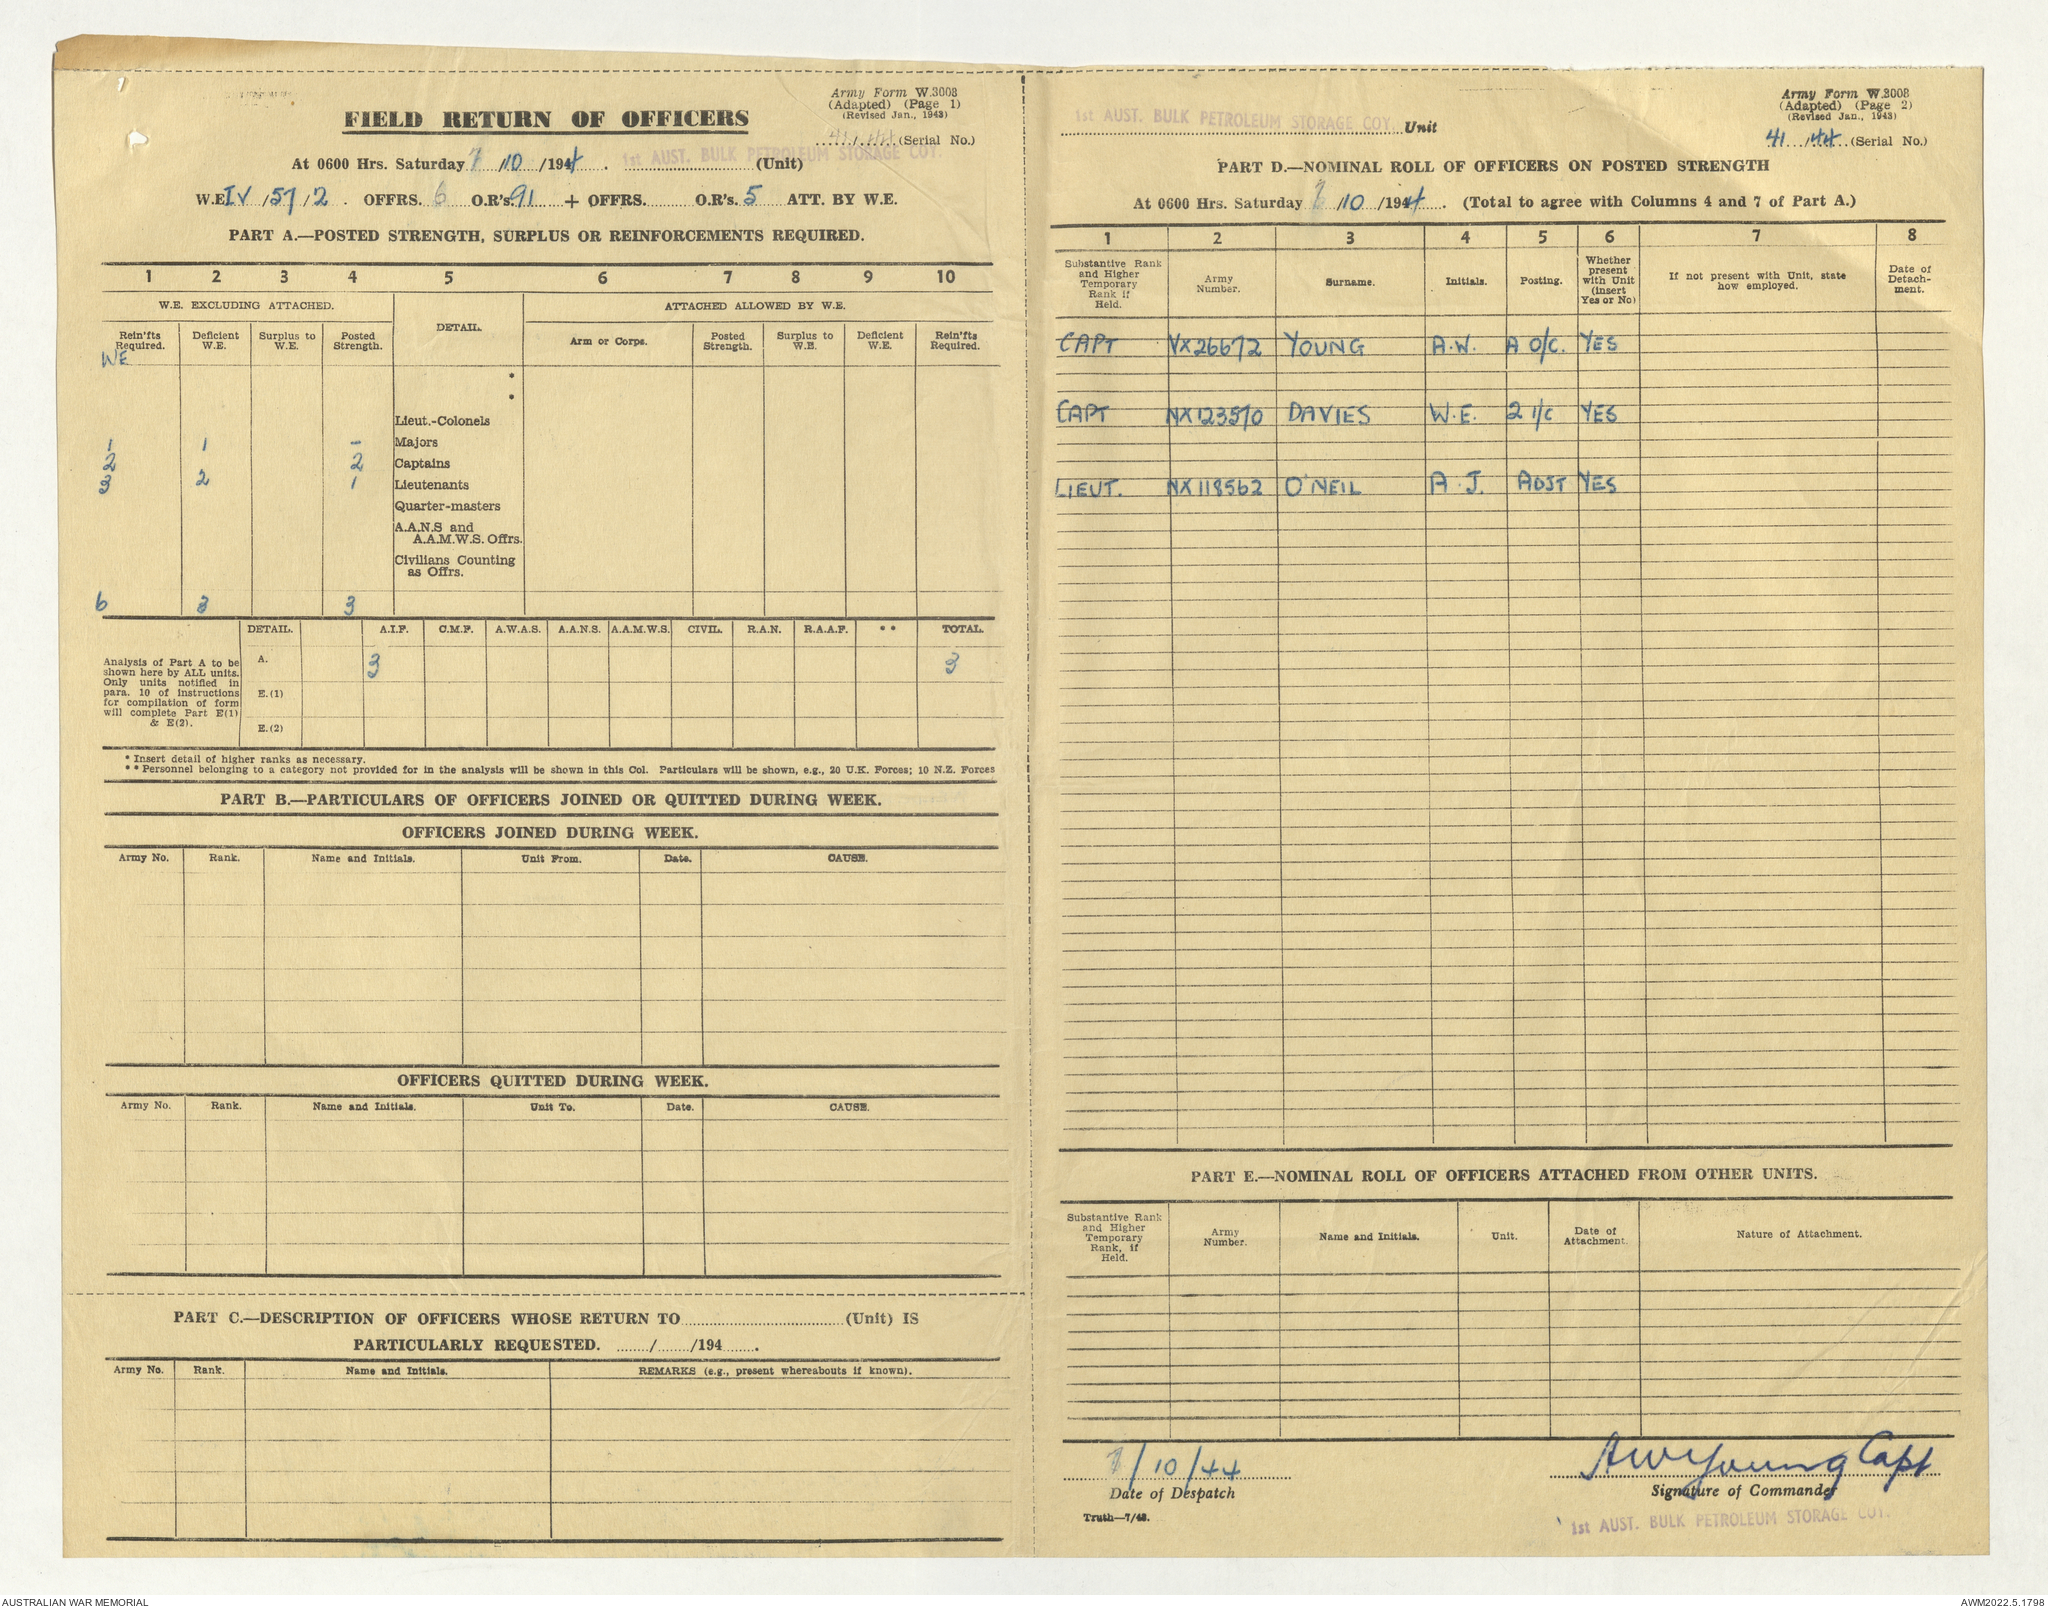 Army Form W.3008
(Adapted) (Page 1)
(Revised Jan., 1943)
FIELD RETURN OF OFFICERS
41/44 (Serial No.)
At 0600 Hrs. Saturday 7/10/1944. 1st AUST. BULK PETROLEUM STORAGE COY. (Unit)
W.E. IV/57/2. OFFRS. 6 O.R's. 91 + OFFRS. O.R's. 5 ATT. BY W.E.
PART A.—POSTED STRENGTH, SURPLUS OR REINFORCEMENTS REQUIRED.
1 2 3 4 5 6 7 8 9 10
W.E. EXCLUDING ATTACHED. DETAIL. ATTACHED ALLOWED BY W.E.
Rein'fts Required. Deficient W.E. Surplus to W.E. Posted Strength. Arm or Corps. Posted Strength. Surplus to W.E. Deficient W.E. Rein'fts Required.
WE
*
*
Lieut.-Colonels
1 1 - Majors
2 2 Captains
3 2 1 Lieutenants
Quarter-masters
A.A.N.S and
A.A.M.W.S. Offrs.
Civilians Counting
as Offrs.
6 3 3
DETAIL. A.I.F. C.M.F. A.W.A.S. A.A.N.S. A.A.M.W.S. CIVIL. R.A.N. R.A.A.F. ** TOTAL.
Analysis of Part A to be
shown here by ALL units.
Only units notified in
para. 10 of instructions
for compilation of form
will complete Part E(1)
& E(2).
A. 3 3
E.(1)
E.(2)
* Insert detail of higher ranks as necessary.
** Personnel belonging to a category not provided for in the analysis will be shown in this Col. Particulars will be shown, e.g., 20 U.K. Forces; 10 N.Z. Forces
PART B.—PARTICULARS OF OFFICERS JOINED OR QUITTED DURING WEEK.
OFFICERS JOINED DURING WEEK.
Army No. Rank. Name and Initials. Unit From. Date. CAUSE.
OFFICERS QUITTED DURING WEEK.
Army No. Rank. Name and Initials. Unit To. Date. CAUSE.
PART C.—DESCRIPTION OF OFFICERS WHOSE RETURN TO (Unit) IS
PARTICULARLY REQUESTED. / /194 .
Army No. Rank. Name and Initials. REMARKS (e.g., present whereabouts if known).
Army Form W.3008
(Adapted) (Page 2)
(Revised Jan., 1943)
1st AUST. BULK PETROLEUM STORAGE COY. Unit
41/44 (Serial No.)
PART D.—NOMINAL ROLL OF OFFICERS ON POSTED STRENGTH
At 0600 Hrs. Saturday 7/10/1944. (Total to agree with Columns 4 and 7 of Part A.)
1 2 3 4 5 6 7 8
Substantive Rank and Higher Temporary Rank if Held. Army Number. Surname. Initials. Posting. Whether present with Unit (insert Yes or No) If not present with Unit, state how employed. Date of Detachment.
CAPT VX26672 YOUNG A.W. A O/C. YES
CAPT NX123570 DAVIES W.E. 2 I/C YES
LIEUT. NX118562 O'NEIL A.J. ADJT YES
PART E.—NOMINAL ROLL OF OFFICERS ATTACHED FROM OTHER UNITS.
Substantive Rank and Higher Temporary Rank, if Held. Army Number. Name and Initials. Unit. Date of Attachment. Nature of Attachment.
7/10/44
Date of Despatch
A W Young Capt
Signature of Commander
Truth—7/43.
1st AUST. BULK PETROLEUM STORAGE COY.
AUSTRALIAN WAR MEMORIAL
AWM2022.5.1798